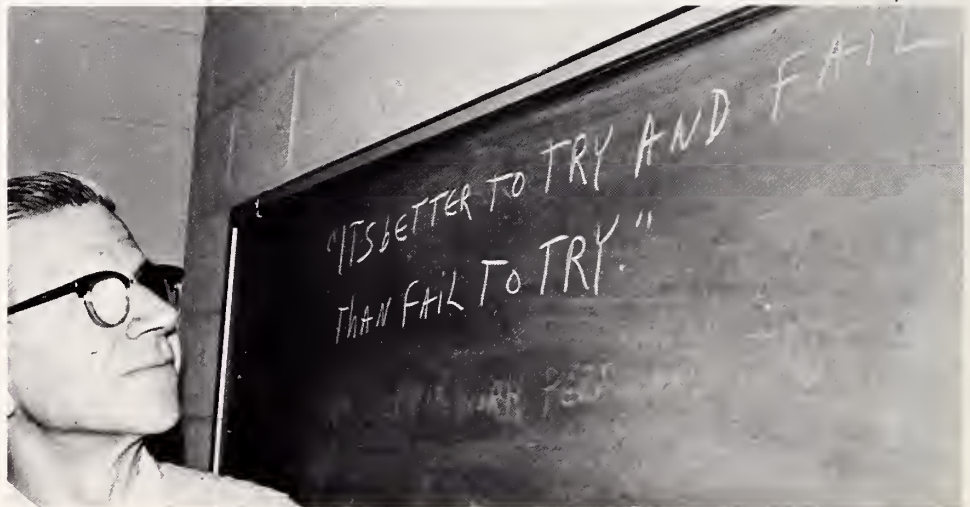 "ITS bETTER TO TRY AND FAIL
ThAN FAiL TO TRY."